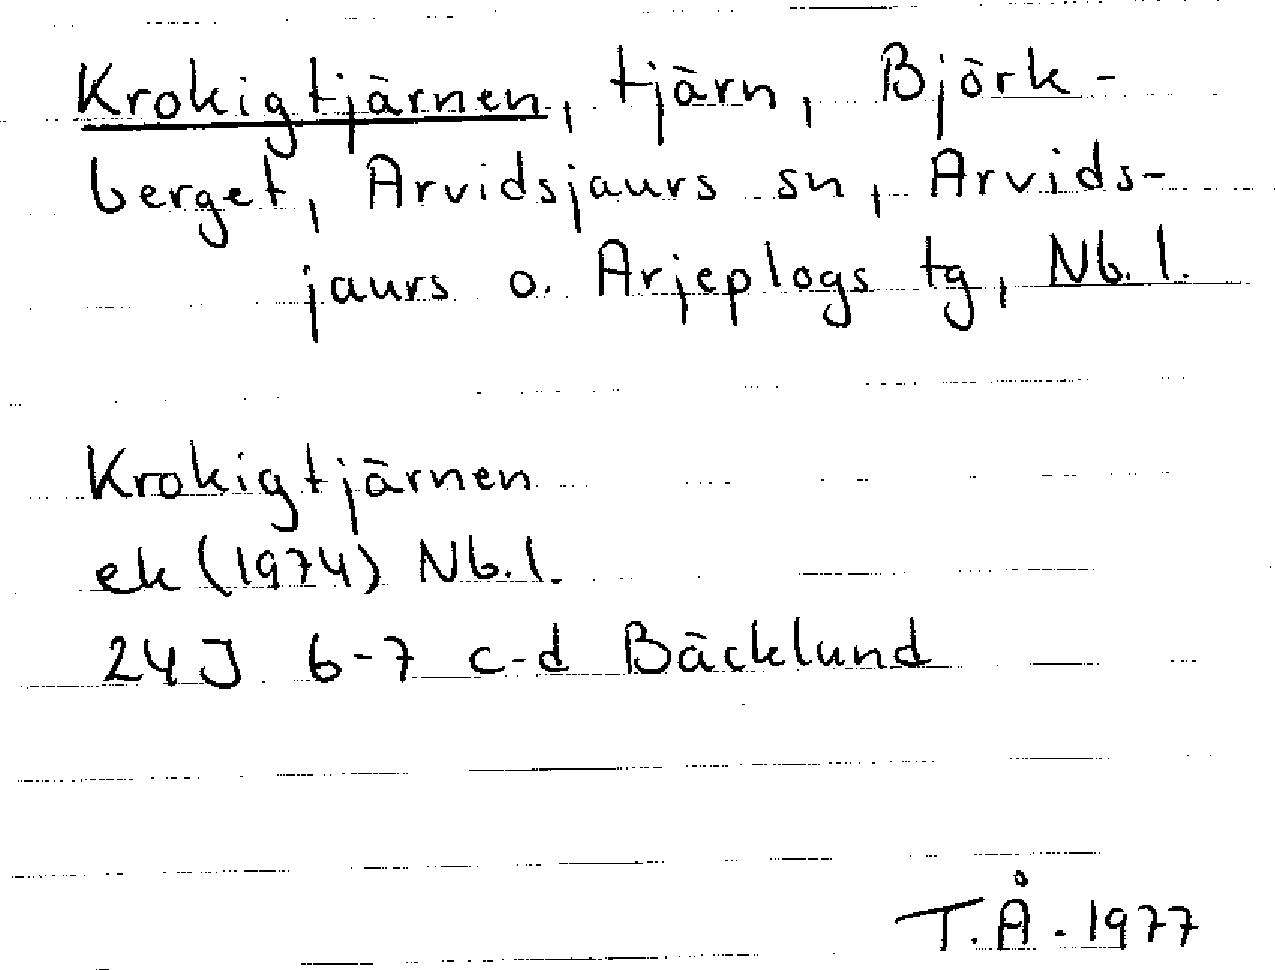 Krokigtjärnen, tjärn, Björk-
berget, Arvidsjaurs sn, Arvids-
jaurs o. Arjeplogs tg, Nb. l.
Krokigtjärnen
ek (1974) Nb. l.
24J 6-7 c-d Bäcklund
T.Å. 1977